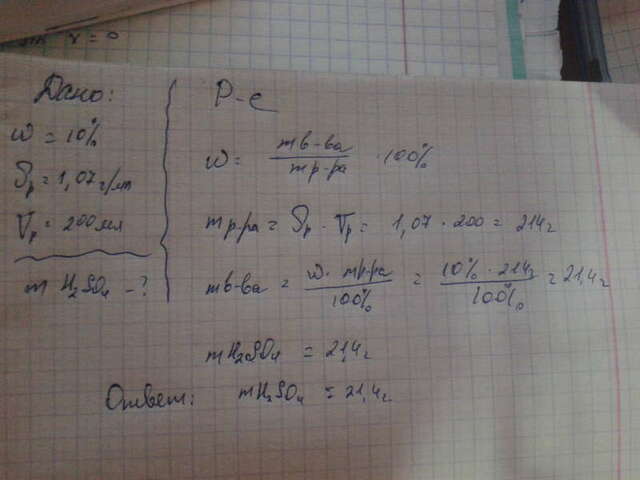 γ = 0
Дано:
ω = 10%
ρр = 1,07 г/мл
Vр = 200 мл
m H₂SO₄ - ?
Р-е
ω = mв-ва / mр-ра · 100%
mр-ра = ρр · Vр = 1,07 · 200 = 214 г
mв-ва = ω · mр-ра / 100% = 10% · 214 г / 100% = 21,4 г
mH₂SO₄ = 21,4 г
Ответ: mH₂SO₄ = 21,4 г